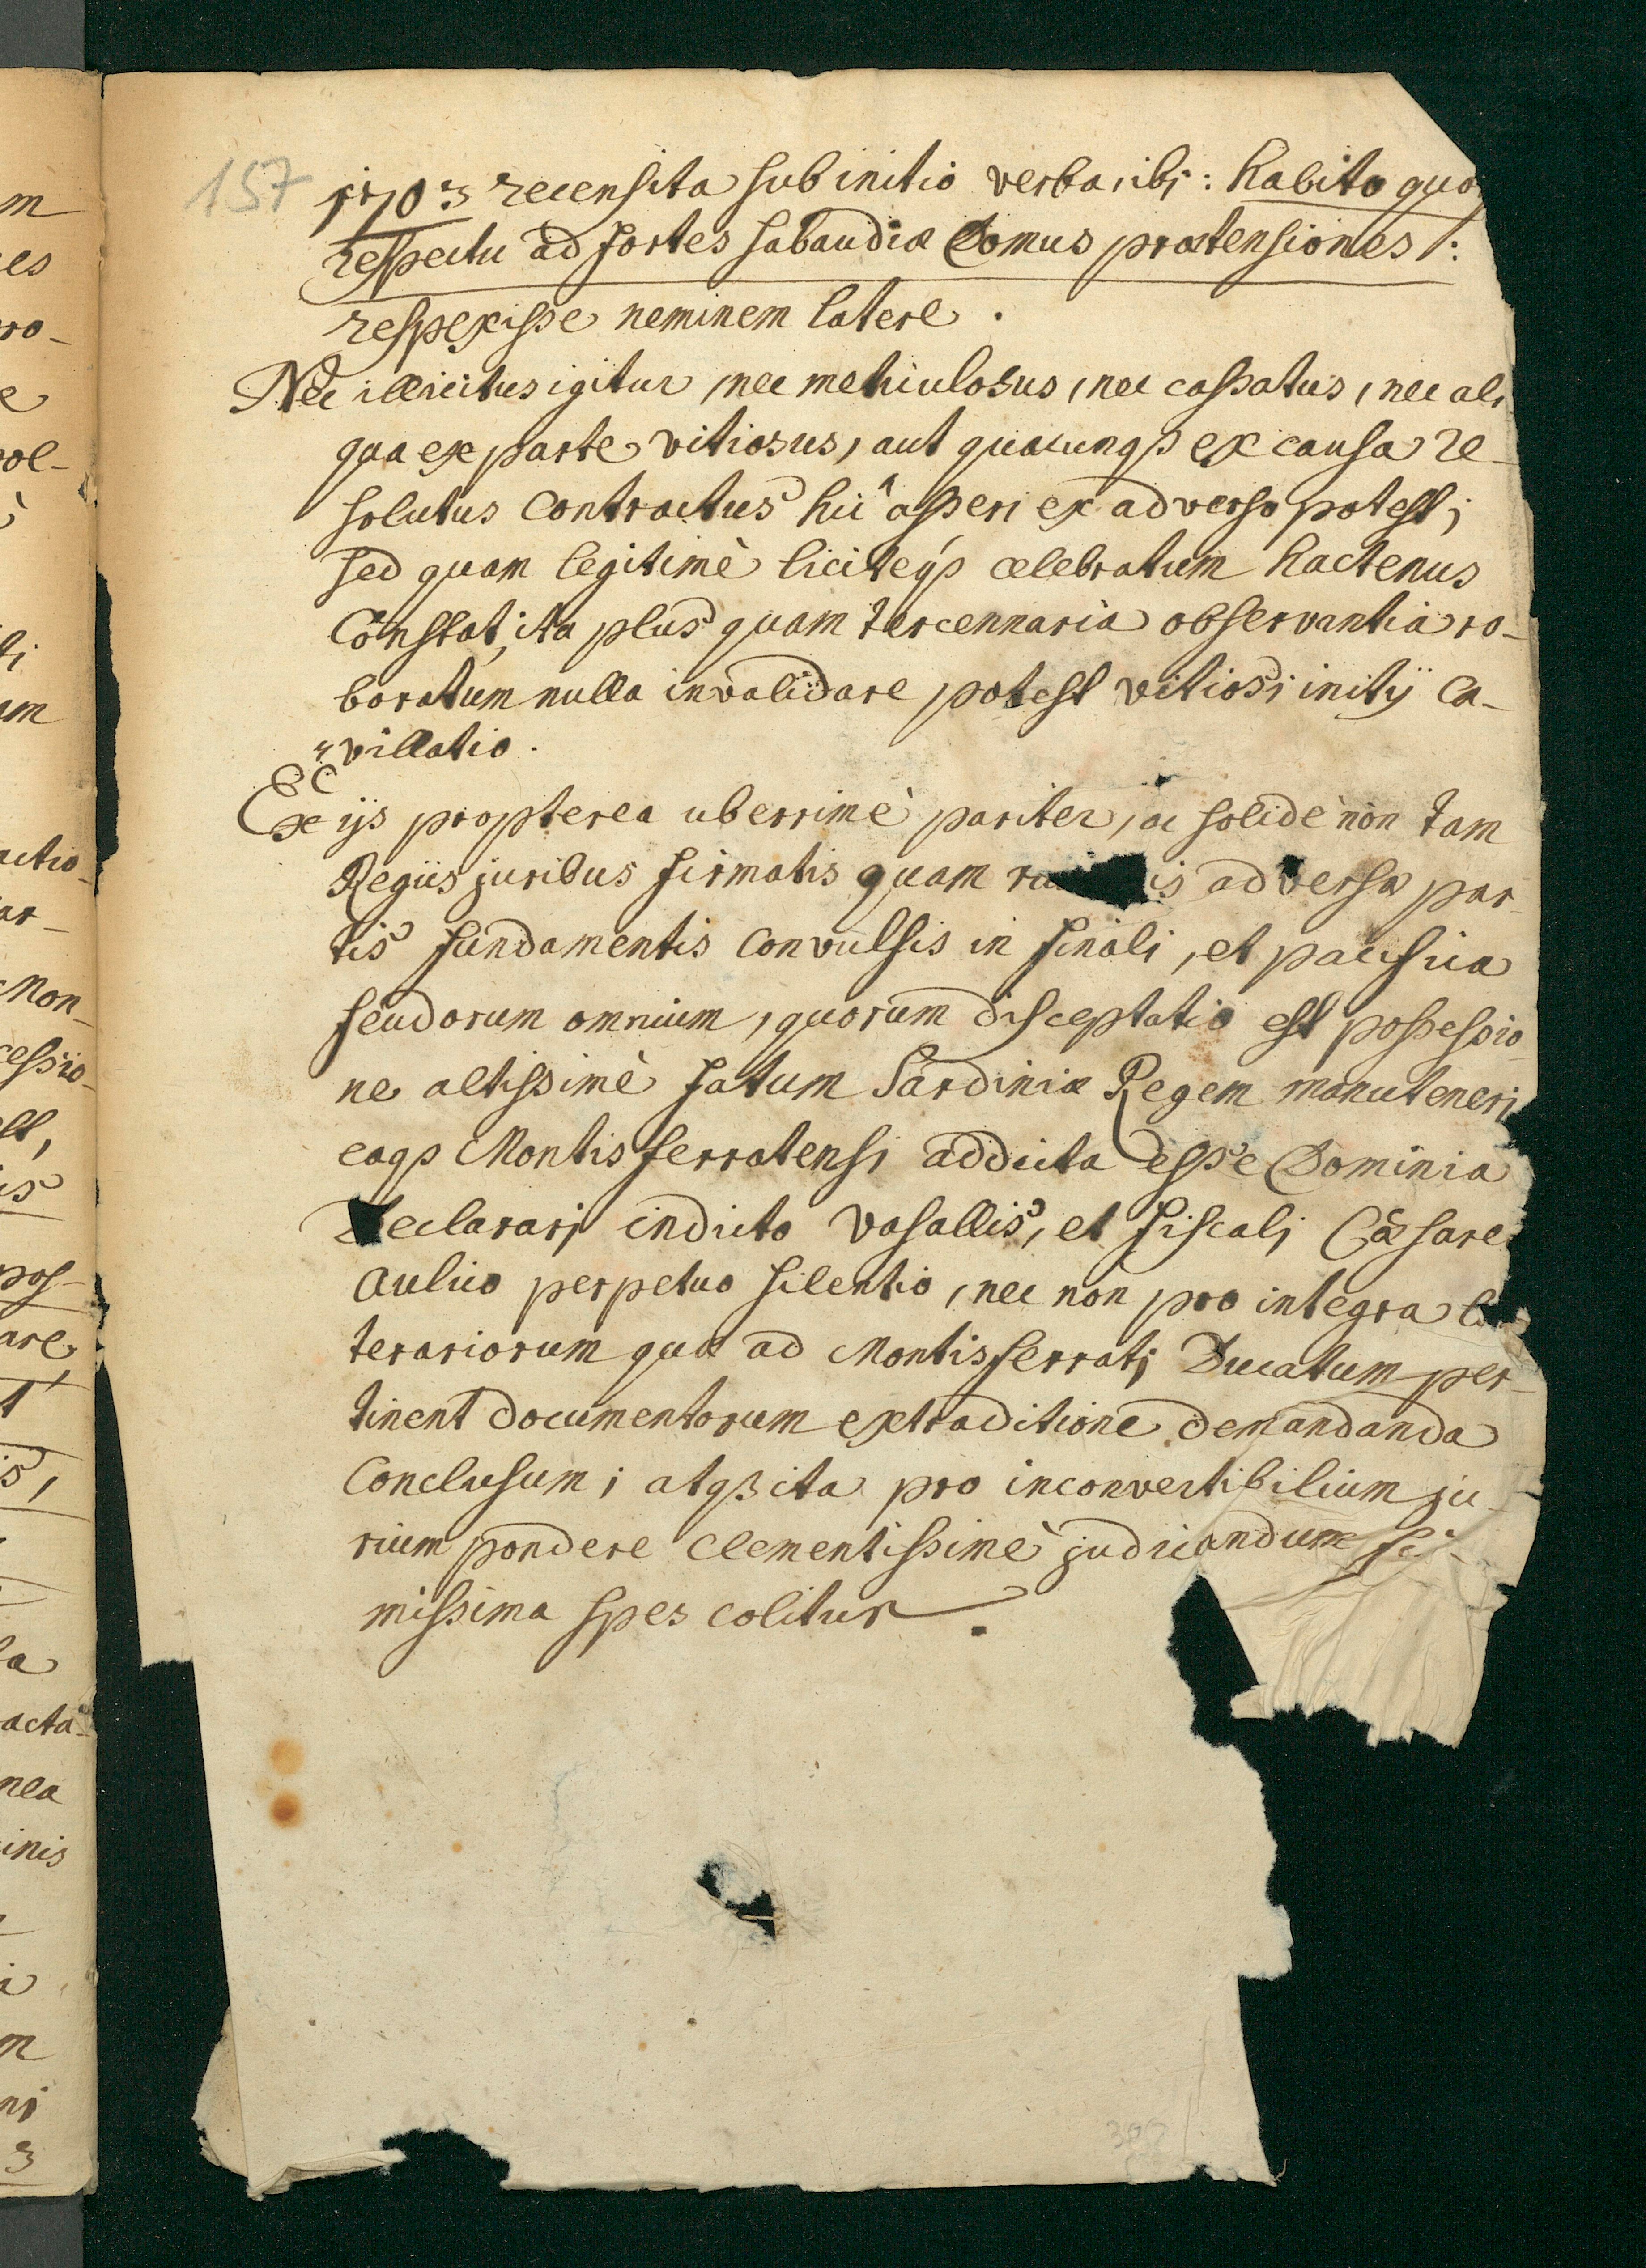 157
1703 recensita sub initio verba, ibi: habito quoq
respectu ad fortes Sabaudiæ Domus prætensiones /:
respexisse neminem latere.
Nec illicitus igitur, nec metriculosus, nec cassatus, nec ali
qua ex parte vitiosus, aut quacunqȝ ex causa re-
solutus Contractus hic asseri ex adverso potest;
sed quam legitimè liciteqȝ celebratum hactenus
Constat, ita plus quam tercennaria observantia ro-
boratum nulla invalidare potest vitiosi initij Ca-
villatio.
Ex ijs propterea uberrimè pariter, ac solidè non tam
Regiis juribus firmatis quam is adversæ par-
tis fundamentis convulsis in finali, et pacifica
feudorum omnium, quorum disceptatio est possessio-
ne altissimè fatum Sardiniæ Regem manuteneri
eaqȝ Montisferratensi addicta esse Dominia
Declarari indicto Vasallis, et Fiscali Cæsare
Aulico perpetuo silentio, nec non pro integra
terariorum quæ ad Montisferrati Ducatum per-
tinent documentorum extraditione demandanda
Conclusum; atqȝ ita pro inconvertibilium ju-
rium pondere Clementissimè judicandum
missima spes colitur.
302